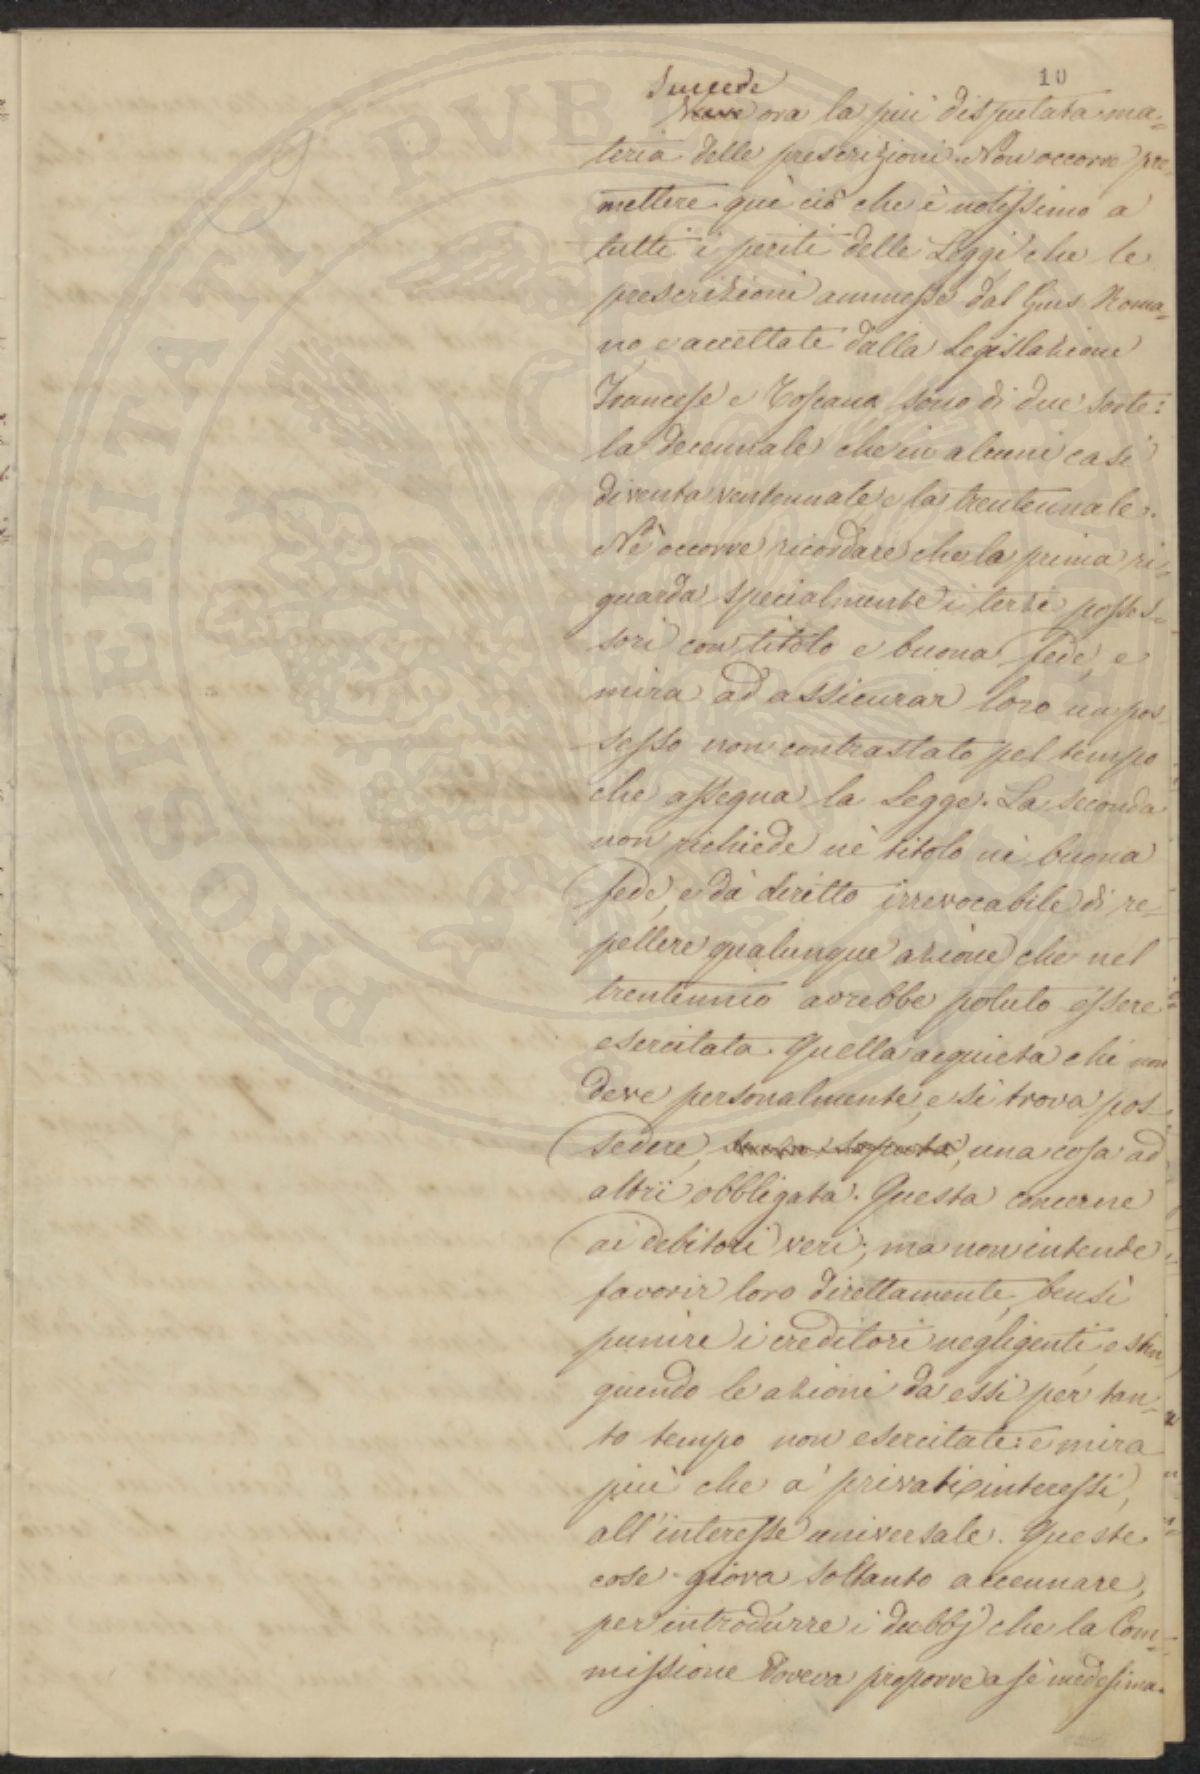 10
Succede
ora la più disputata ma=
teria delle prescrizioni. Non occorre pre=
mettere qui ciò che è notissimo a
tutti i periti delle Leggi che le
prescrizioni ammesse dal Gius Roma=
no, e accettate dalla Legislazione
Francese e Toscana sono di due sorte:
la decennale che in alcuni casi
diventa ventennale e la trentennale.
Nè occorre ricordare che la prima ri=
guarda specialmente i terzi posses=
sori con titolo e buona fede, e
mira ad assicurar loro un pos
sesso non contrastato pel tempo
che assegna la Legge. La seconda
non richiede nè titolo nè buona
fede, e dà diritto irrevocabile di re=
pellere qualunque azione che nel
trentennio avrebbe potuto essere
esercitata. Quella acquieta chi non
deve personalmente, e si trova pos=
sedere, una cosa ad
altrii obbligata. Questa concerne
ai debitori veri; ma non intende
favorir loro direttamente, bensì
punire i creditori negligenti, estin
guendo le azioni da essi per tan=
to tempo non esercitate: e mira
più che a' privati interessi,
all'interesse universale. Queste
cose giova soltanto accennare,
per introdurre i dubbj che la Com=
missione doveva proporre a sè medesima.
PROSPERITATI PVB